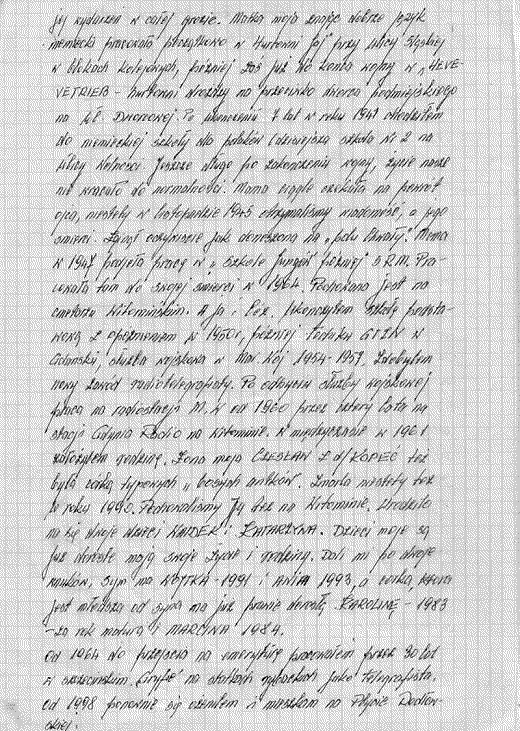 jej wydarzeń w całej grozie. Matka moja znając dobrze język
niemiecki pracowała początkowo w Hurtowni jaj przy ulicy Śląskiej
w blokach kolejowych, później zaś już do końca wojny w „HEVE-
VETRIEB - hurtowni drożdży na przeciwko dworca podmiejskiego
na ul. Dworcowej. Po ukończeniu 7 lat w roku 1941 chodziłem
do niemieckiej szkoły dla polaków (dzisiejsza szkoła nr 2 na
ulicy Wolności. Jeszcze długo po zakończeniu wojny, życie nasze
nie wracało do normalności. Mama ciągle czekała na powrót
ojca, niestety w listopadzie 1945 otrzymaliśmy wiadomość, o jego
śmierci. Zginął oczywiście jak doniesiono na „polu Chwały". Mama
w 1947 podjęła pracę w „Szkole Jungów później S.R.M. Pra-
cowała tam do swojej śmierci w 1964. Pochowana jest na
cmentarzu Witomińskim. A ja i Lez. Ukończyłem szkołę podsta-
wową z opóźnieniem w 1950r, później Technik. GTZN w
Gdańsku, służba wojskowa w Mar. Woj 1954-1957. Zdobyłem
nowy zawód radiotelegrafisty. Po odbyciu służby wojskowej
praca na radiostacji M.W od 1960 przez cztery lata na
stacji Gdynia Radio na Witominie. W międzyczasie w 1961
założyłem rodzinę. Żona moja CZESŁAWA z d/KOPEĆ też
była córką typowych „bosych antków. Zmarła niestety też
w roku 1990. Pochowaliśmy Ją też na Witominie. Urodziło
na się dwoje dzieci WALDEK i KATARZYNA. Dzieci moje są
już dorosłe mają swoje życie i rodziny. Dali mi po dwoje
wnuków. Syn ma WOJTKA - 1991 i ANIA 1993, a córka, która
jest młodsza od syna ma już prawie dorosłą KAROLINĘ - 1983
- za rok matura i MARCINA 1984.
Od 1964 do przejścia na emeryturę pracowałem przez 30 lat
w szczecińskim „Gryfie" na statkach rybackich jako telegrafista.
Od 1998 ponownie się ożeniłem i mieszkam na Płycie Redłow-
skiej.